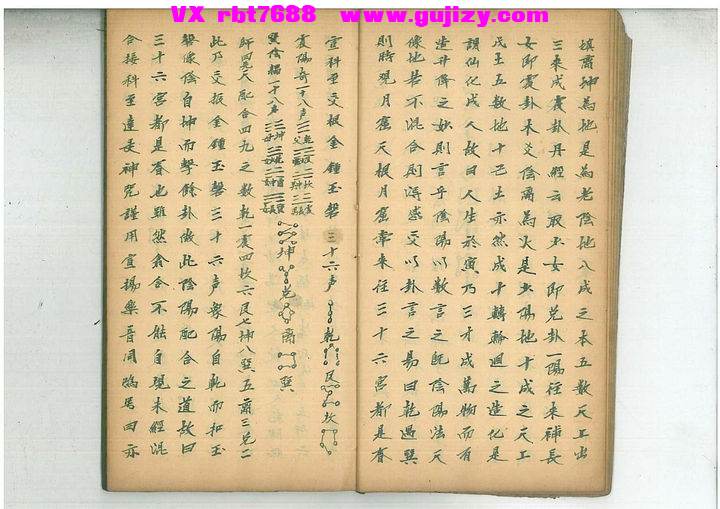 VX rbt7688 www.gujizy.com
坤為地是為老陰地八成之本五數天三出
三來成震卦丹經云取坎女即兌卦一陽往來補長
女即震卦木爻陰離為火是太陽地十成之天五
戊土五數地十己土亦然成十轉輪迴之造化是
謂仙化成人故曰人生於寅乃三才成萬物而有
造升降之妙則言乎陰陽以數言之既陰陽法天
像地若不混合則得盛交以卦言之易曰乾遇巽
則時觀月窟天根月窟常來往三十六宮都是春
宣科至交振金鐘玉磬三十六声 乾 艮 坎
震陽奇一十八声
巽陰耦一十八声 坤 兌 离 巽
師四吳天配合四九之數乾一震四坎六艮七坤八巽五离三兌二
此乃交振金鐘玉磬三十六声衆陽自乾而扣玉
磬像陰自坤而擊餘卦倣此陰陽配合之道故曰
三十六宮都是春也雖然會合不能自現未經混
合接科至達妄神咒謹用宣揚樂音同臨馬曰亦